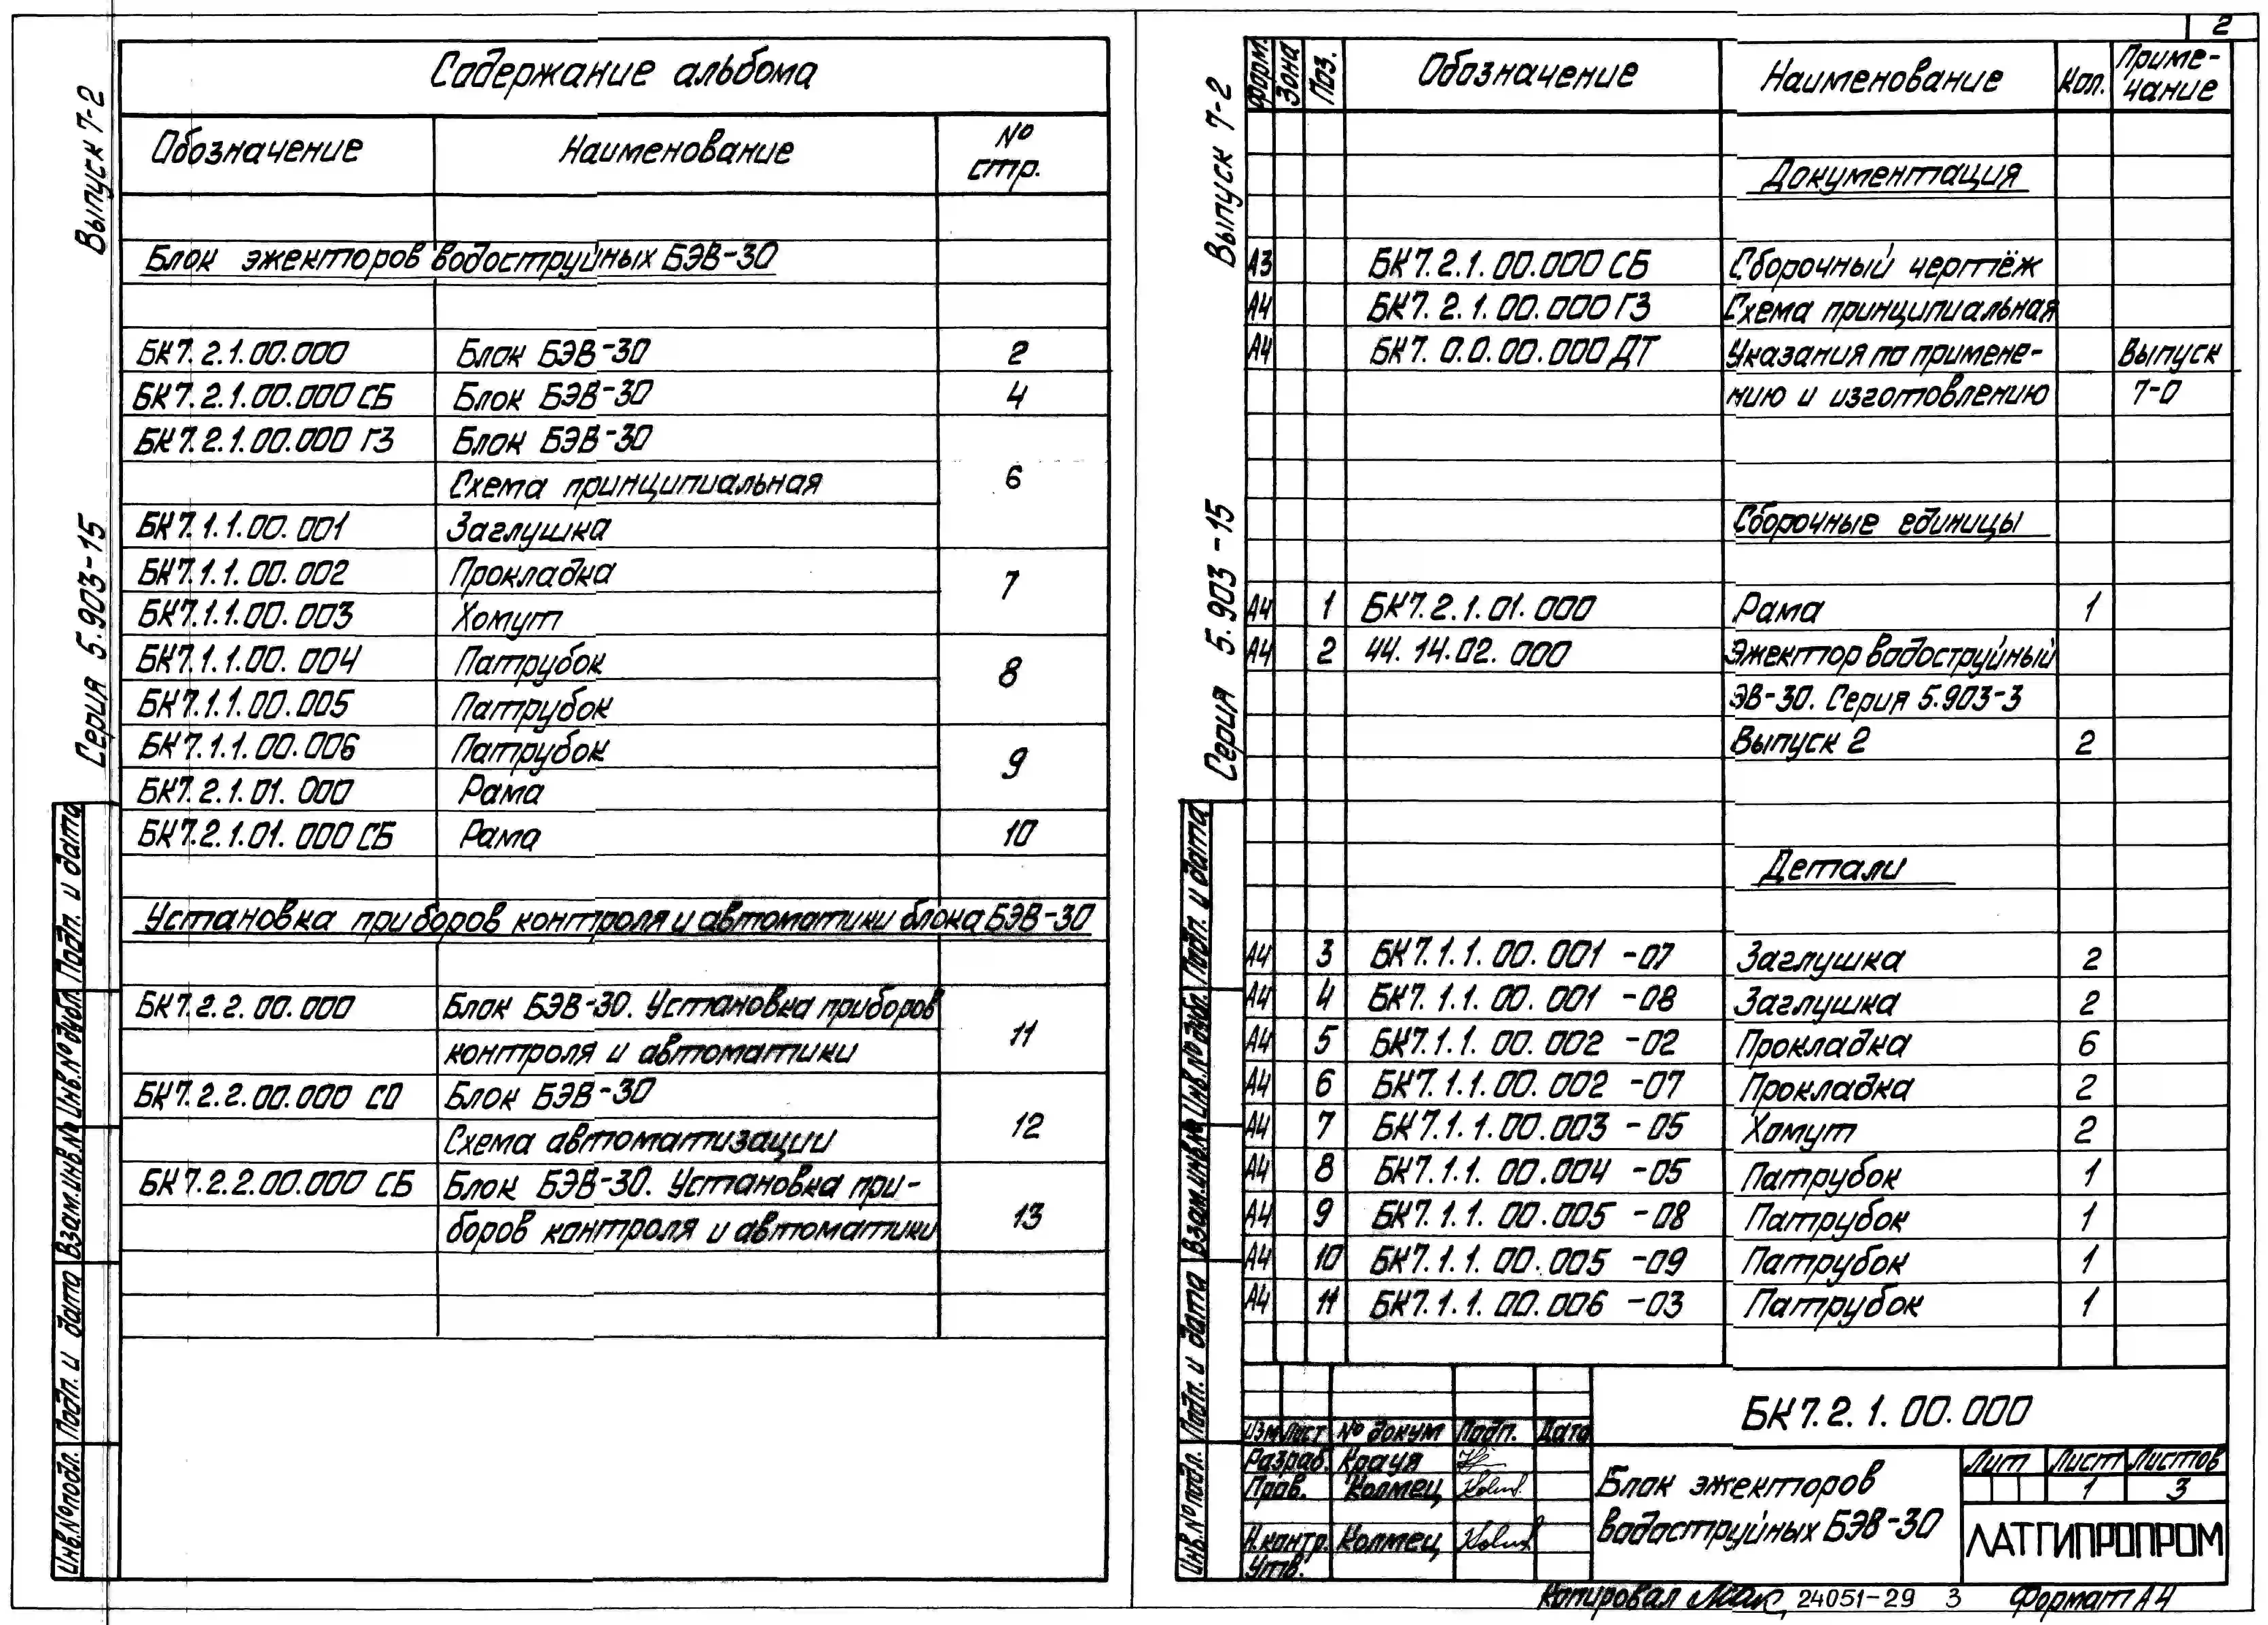 Содержание альбома
Обозначение Наименование № стр.
Блок эжекторов водоструйных БЭВ-30
БК7.2.1.00.000 Блок БЭВ-30 2
БК7.2.1.00.000 СБ Блок БЭВ-30 4
БК7.2.1.00.000 Г3 Блок БЭВ-30
Схема принципиальная 6
БК7.1.1.00.001 Заглушка
БК7.1.1.00.002 Прокладка 7
БК7.1.1.00.003 Хомут
БК7.1.1.00.004 Патрубок 8
БК7.1.1.00.005 Патрубок
БК7.1.1.00.006 Патрубок 9
БК7.2.1.01.000 Рама
БК7.2.1.01.000 СБ Рама 10
Установка приборов контроля и автоматики блока БЭВ-30
БК7.2.2.00.000 Блок БЭВ-30. Установка приборов
контроля и автоматики 11
БК7.2.2.00.000 СО Блок БЭВ-30
Схема автоматизации 12
БК7.2.2.00.000 СБ Блок БЭВ-30. Установка при-
боров контроля и автоматики 13
Выпуск 7-2
Серия 5.903-15
Подп. и дата
Инв.№ дубл.
Взам.инв.№
Подп. и дата
Инв.№ подл.
2
Форм. Зона Поз. Обозначение Наименование Кол. Приме-
чание
Документация
А3 БК7.2.1.00.000 СБ Сборочный чертёж
А4 БК7.2.1.00.000 Г3 Схема принципиальная
А4 БК7.0.0.00.000 ДТ Указания по примене- Выпуск
нию и изготовлению 7-0
Сборочные единицы
А4 1 БК7.2.1.01.000 Рама 1
А4 2 44.14.02.000 Эжектор водоструйный
ЭВ-30. Серия 5.903-3
Выпуск 2 2
Детали
А4 3 БК7.1.1.00.001 -07 Заглушка 2
А4 4 БК7.1.1.00.001 -08 Заглушка 2
А4 5 БК7.1.1.00.002 -02 Прокладка 6
А4 6 БК7.1.1.00.002 -07 Прокладка 2
А4 7 БК7.1.1.00.003 -05 Хомут 2
А4 8 БК7.1.1.00.004 -05 Патрубок 1
А4 9 БК7.1.1.00.005 -08 Патрубок 1
А4 10 БК7.1.1.00.005 -09 Патрубок 1
А4 11 БК7.1.1.00.006 -03 Патрубок 1
Выпуск 7-2
Серия 5.903-15
Подп. и дата
Инв.№ дубл.
Взам.инв.№
Подп. и дата
Инв.№ подл.
БК7.2.1.00.000
Изм Лист № докум Подп. Дата
Разраб. Крауя
Пров. Колмец
Н.контр. Колмец
Утв.
Блок эжекторов
водоструйных БЭВ-30
Лит Лист Листов
1 3
ЛАТГИПРОПРОМ
Копировал 24051-29 3 Формат А4